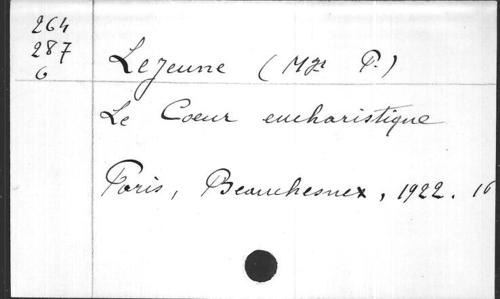 264
287
6
Lejeune (Mgr P.)
Le Coeur eucharistique
Paris, Beauchesne, 1922. 16